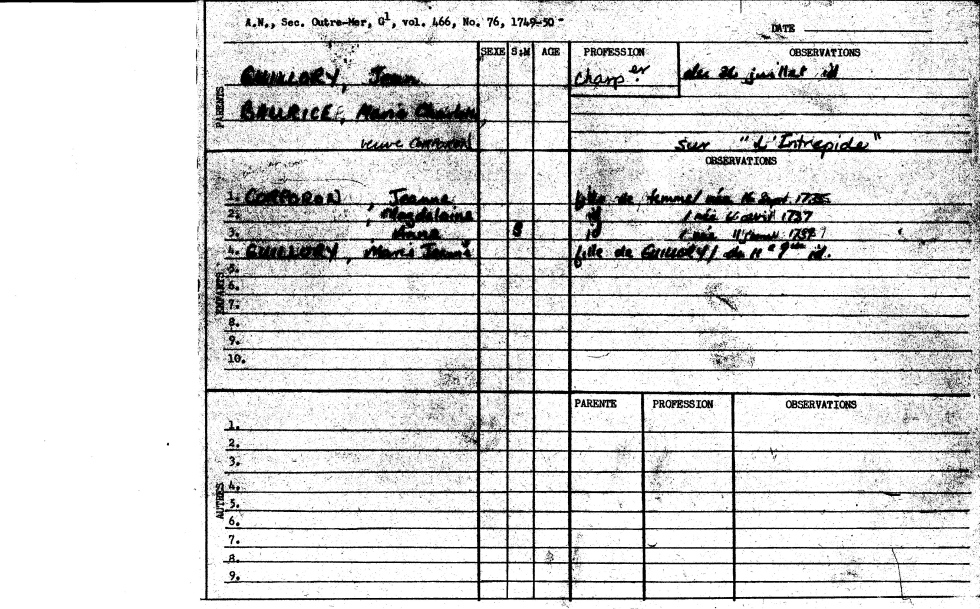 A.N., Sec. Outre-Mer, G1, vol. 466, No. 76, 1749-50
DATE
SEXE S:M AGE PROFESSION OBSERVATIONS
PARENTS
GUILLORY, Jean charp.er juillet id
Marie Charlo
veuve CORPORON sur "L'Intrepide"
OBSERVATIONS
ENFANTS
1. CORPORON, Jeanne fille de femme/ née 16 Sept. 1735
2. , Magdelaine id / née avril 1737
3. Anne S id / née
4. GUILLORY, Marie Jeanne fille de GUILLORY/ id.
5.
6.
7.
8.
9.
10.
PARENTE PROFESSION OBSERVATIONS
AUTRES
1.
2.
3.
4.
5.
6.
7.
8.
9.